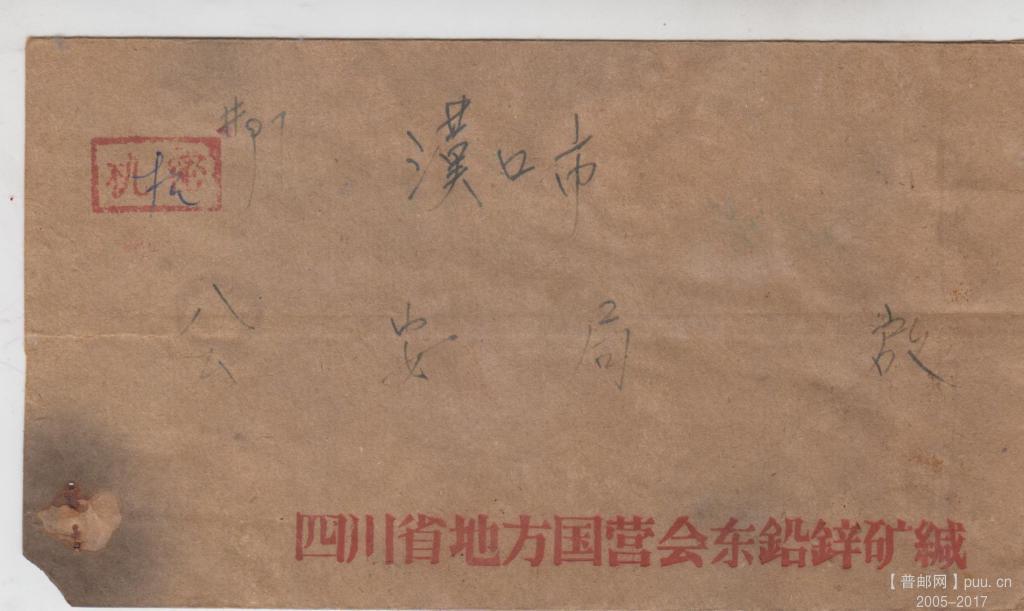 漢口市
机密
公安局 啟
四川省地方国营会东鉛鋅矿缄
【普邮网】puu.cn
2005-2017